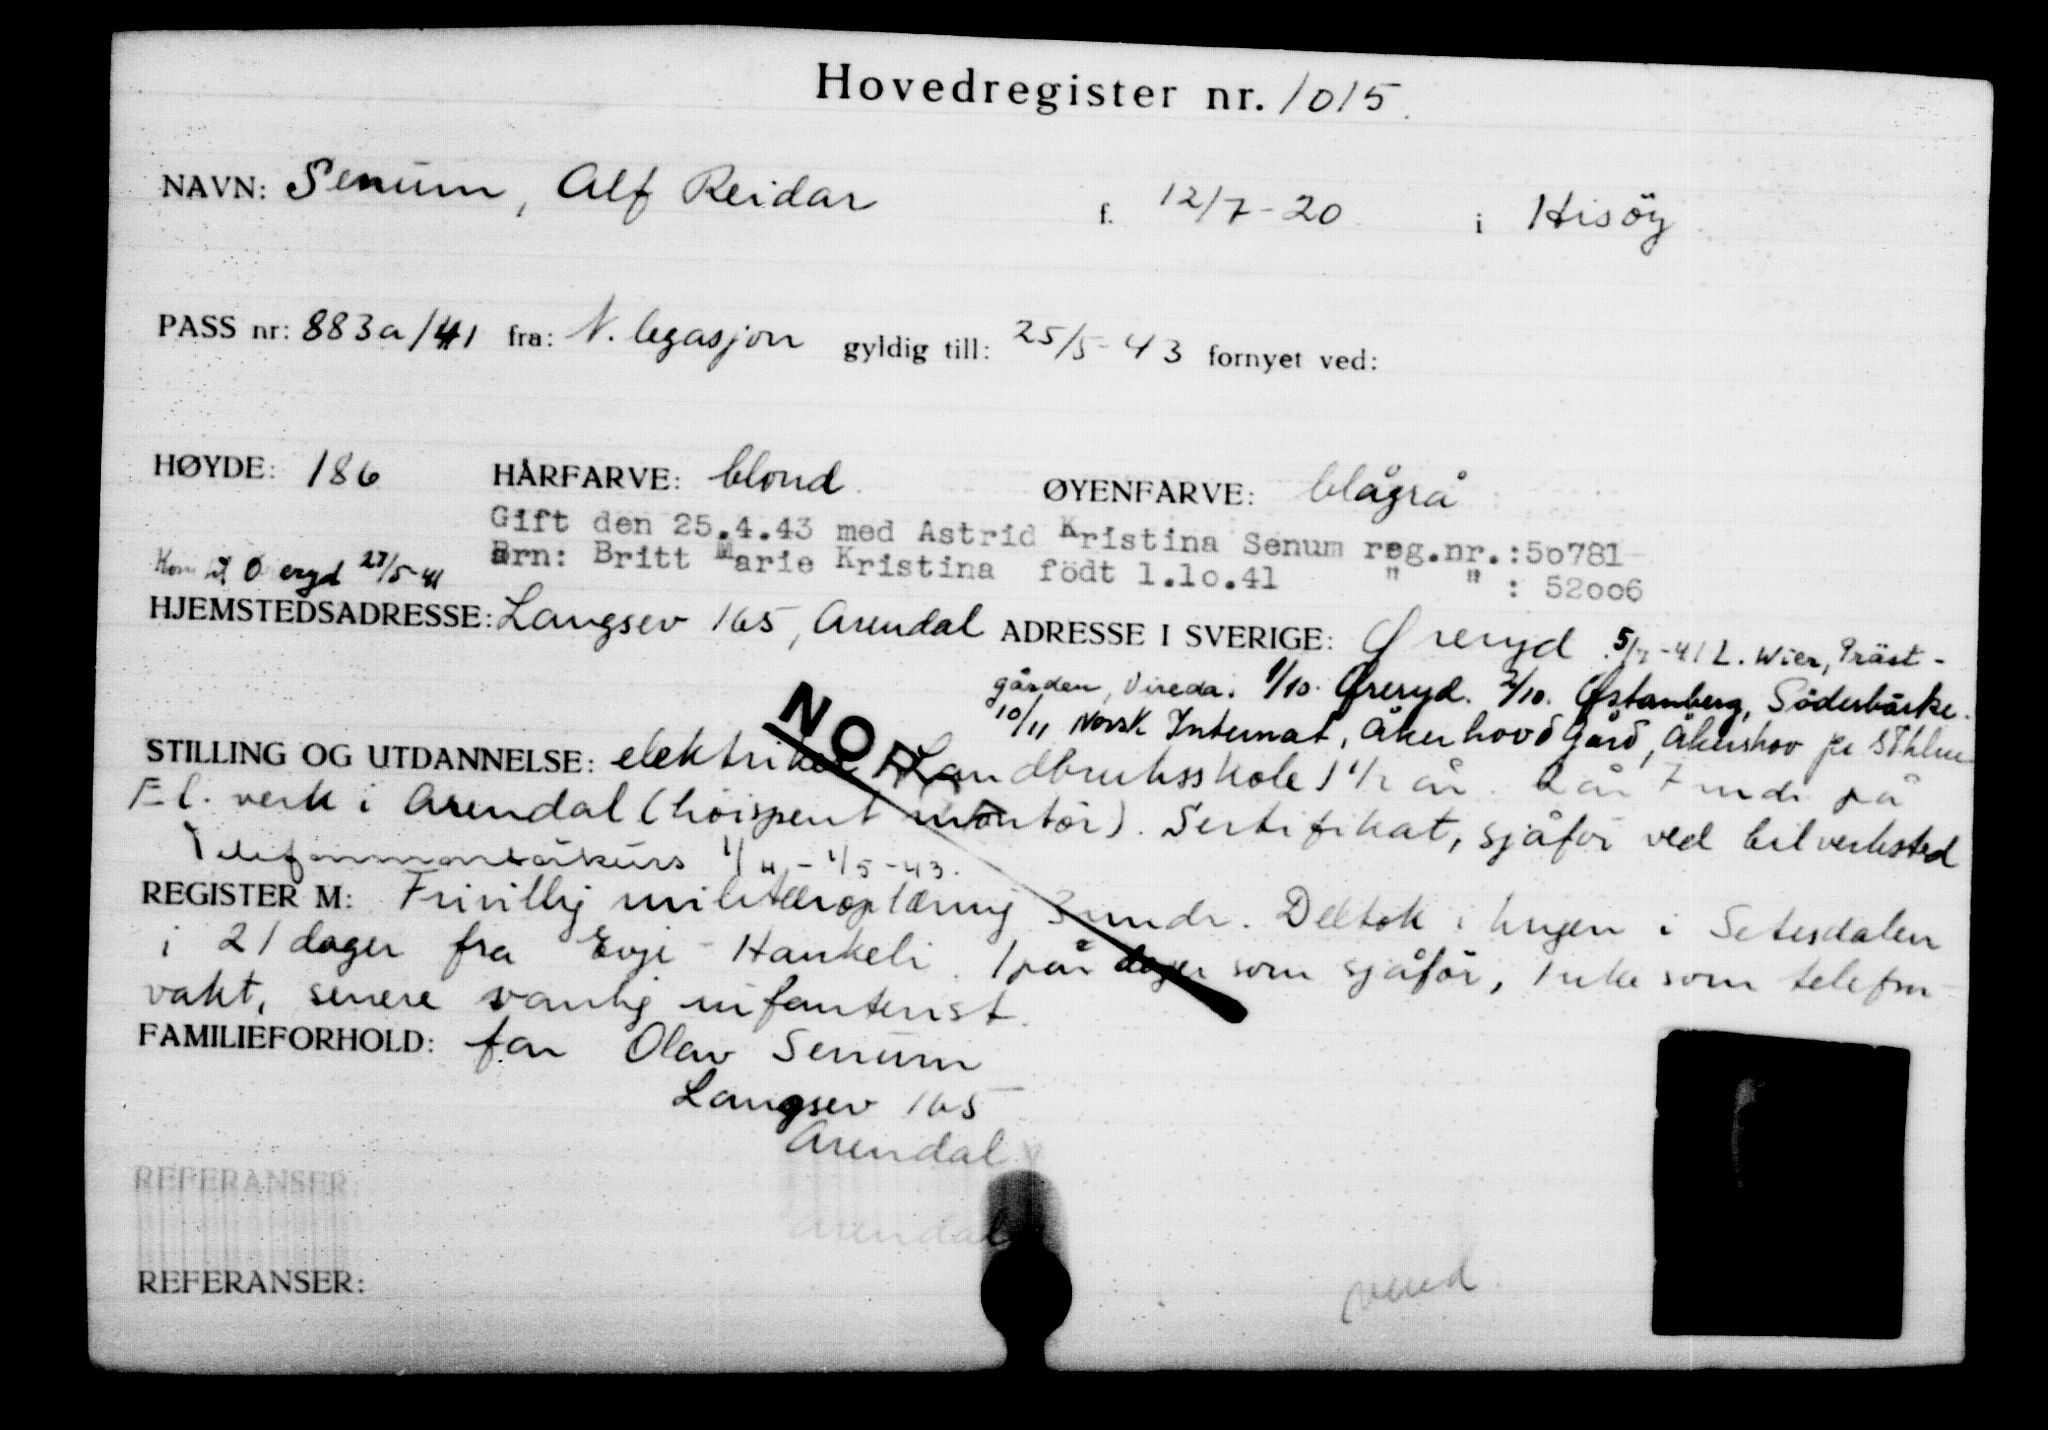 Hovedregister nr. 1015.
NAVN: Senum, Alf Reidar f. 12/7-20 i Hisöy
PASS nr: 883a/41 fra: N. legasjon gyldig till: 25/5-43 fornyet ved:
HØYDE: 186 HÅRFARVE: blond ØYENFARVE: blågrå
Gift den 25.4.43 med Astrid Kristina Senum reg.nr.:50781
Barn: Britt Marie Kristina födt 1.10.41 " " : 52006
Kom til Øreryd 23/5-41
HJEMSTEDSADRESSE: Langsev 165, Arendal ADRESSE I SVERIGE: Øreryd 5/7-41 L. Wier, Präst-
gården, Vireda. 1/10. Øreryd. 2/10. Østanberg, Söderbärke.
10/11 Norsk Internat, Åkerhovd Gård, Åkershov pr Sthlm
STILLING OG UTDANNELSE: elektriker Landbruksskole 1 1/2 år. 2 år 7 mdr på
El. verk i Arendal (höispent montör). Sertifikat, sjåför ved bilverksted
Telefonmontörkurs 1/4-1/5-43.
NOR
REGISTER M: Frivillig militæroplæring 3 mndr. Deltok i krigen i Setesdalen
i 21 dager fra Evje - Haukeli. 1 par dager som sjåför, 1 uke som telefon
vakt, senere vanlig infanterist.
FAMILIEFORHOLD: far Olav Senum
Langsev 165
Arendal
REFERANSER
Arendal
REFERANSER:
vend